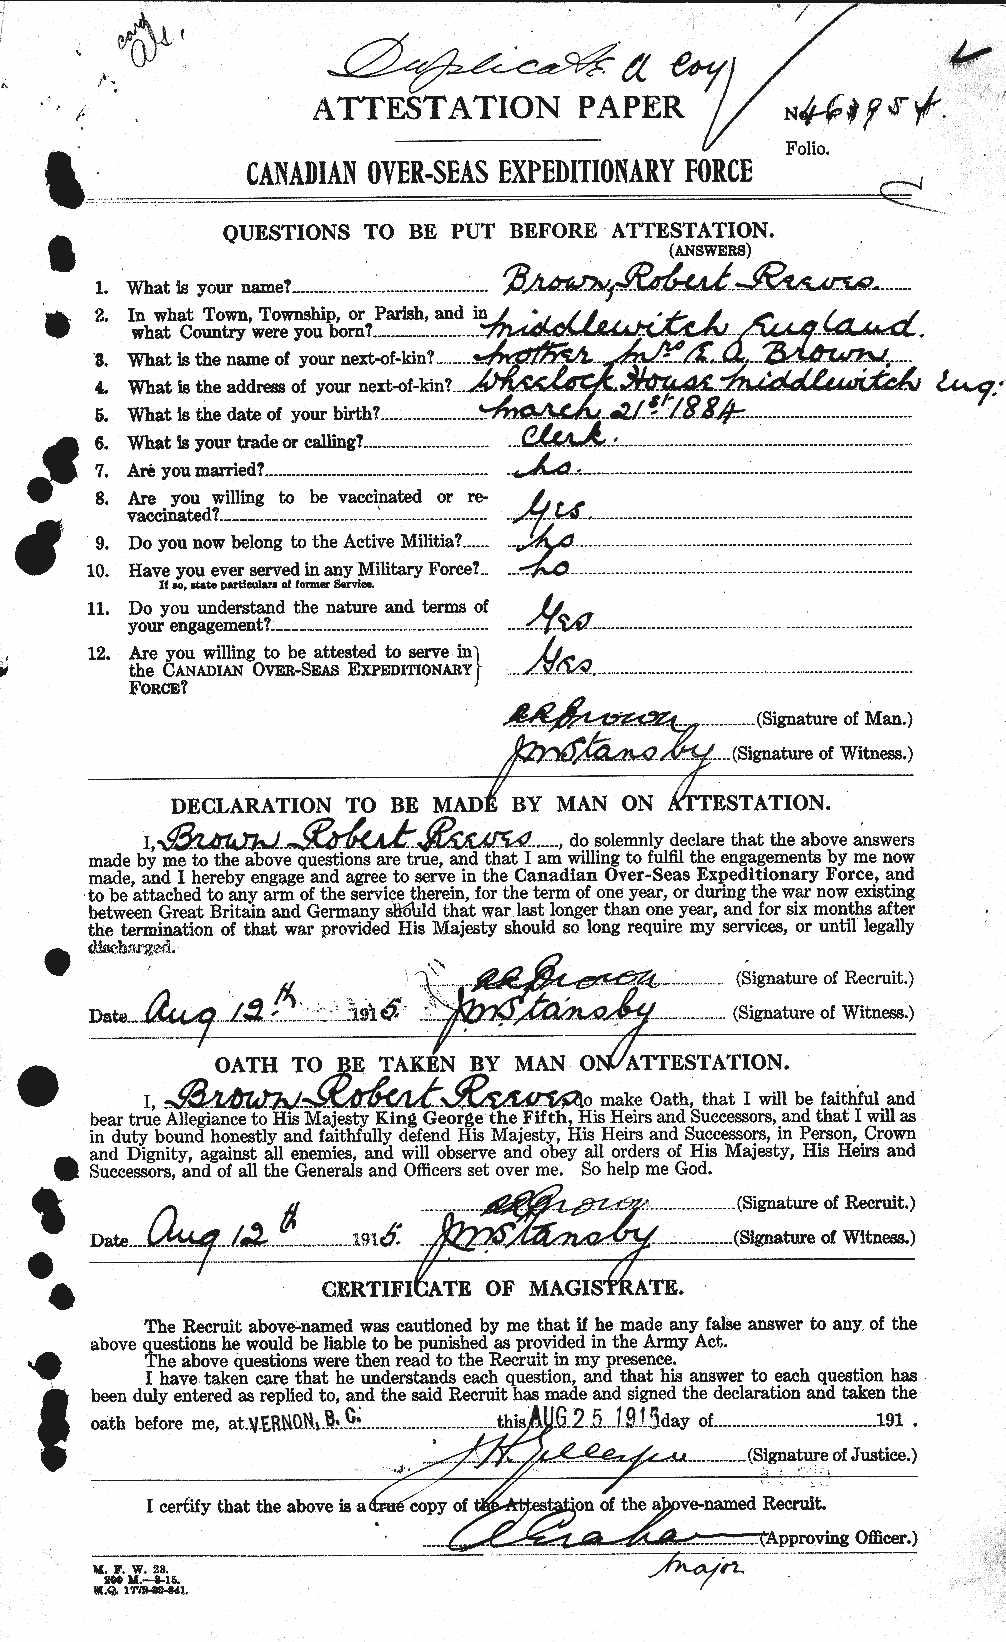 card
Als.
Duplicate A Coy
ATTESTATION PAPER
No. 463954.
Folio.
CANADIAN OVER-SEAS EXPEDITIONARY FORCE
QUESTIONS TO BE PUT BEFORE ATTESTATION.
(ANSWERS)
1. What is your name? Brown, Robert Reeves.
2. In what Town, Township, or Parish, and in
what Country were you born? Middlewitch England.
3. What is the name of your next-of-kin? Mother Mrs E A Brown
4. What is the address of your next-of-kin? Wheelock House Middlewitch Eng.
5. What is the date of your birth? March 21st 1884
6. What is your trade or calling? Clerk.
7. Are you married? No.
8. Are you willing to be vaccinated or re-
vaccinated? Yes
9. Do you now belong to the Active Militia? No
10. Have you ever served in any Military Force? No
If so, state particulars of former Service.
11. Do you understand the nature and terms of
your engagement? Yes
12. Are you willing to be attested to serve in
the CANADIAN OVER-SEAS EXPEDITIONARY Yes
FORCE?
RRBrown (Signature of Man.)
JMStansby (Signature of Witness.)
DECLARATION TO BE MADE BY MAN ON ATTESTATION.
I, Brown Robert Reeves, do solemnly declare that the above answers
made by me to the above questions are true, and that I am willing to fulfil the engagements by me now
made, and I hereby engage and agree to serve in the Canadian Over-Seas Expeditionary Force, and
to be attached to any arm of the service therein, for the term of one year, or during the war now existing
between Great Britain and Germany should that war last longer than one year, and for six months after
the termination of that war provided His Majesty should so long require my services, or until legally
discharged.
RRBrown (Signature of Recruit.)
Date Aug 12th 1915. JMStansby (Signature of Witness.)
OATH TO BE TAKEN BY MAN ON ATTESTATION.
I, Brown Robert Reeves do make Oath, that I will be faithful and
bear true Allegiance to His Majesty King George the Fifth, His Heirs and Successors, and that I will as
in duty bound honestly and faithfully defend His Majesty, His Heirs and Successors, in Person, Crown
and Dignity, against all enemies, and will observe and obey all orders of His Majesty, His Heirs and
Successors, and of all the Generals and Officers set over me. So help me God.
RRBrown (Signature of Recruit.)
Date Aug 12th 1915. JMStansby (Signature of Witness.)
CERTIFICATE OF MAGISTRATE.
The Recruit above-named was cautioned by me that if he made any false answer to any of the
above questions he would be liable to be punished as provided in the Army Act.
The above questions were then read to the Recruit in my presence.
I have taken care that he understands each question, and that his answer to each question has
been duly entered as replied to, and the said Recruit has made and signed the declaration and taken the
oath before me, at VERNON, B.C. this AUG 25 1915 day of 191 .
(Signature of Justice.)
I certify that the above is a true copy of the Attestation of the above-named Recruit.
(Approving Officer.)
Major
M. F. W. 23.
200 M.—8-15.